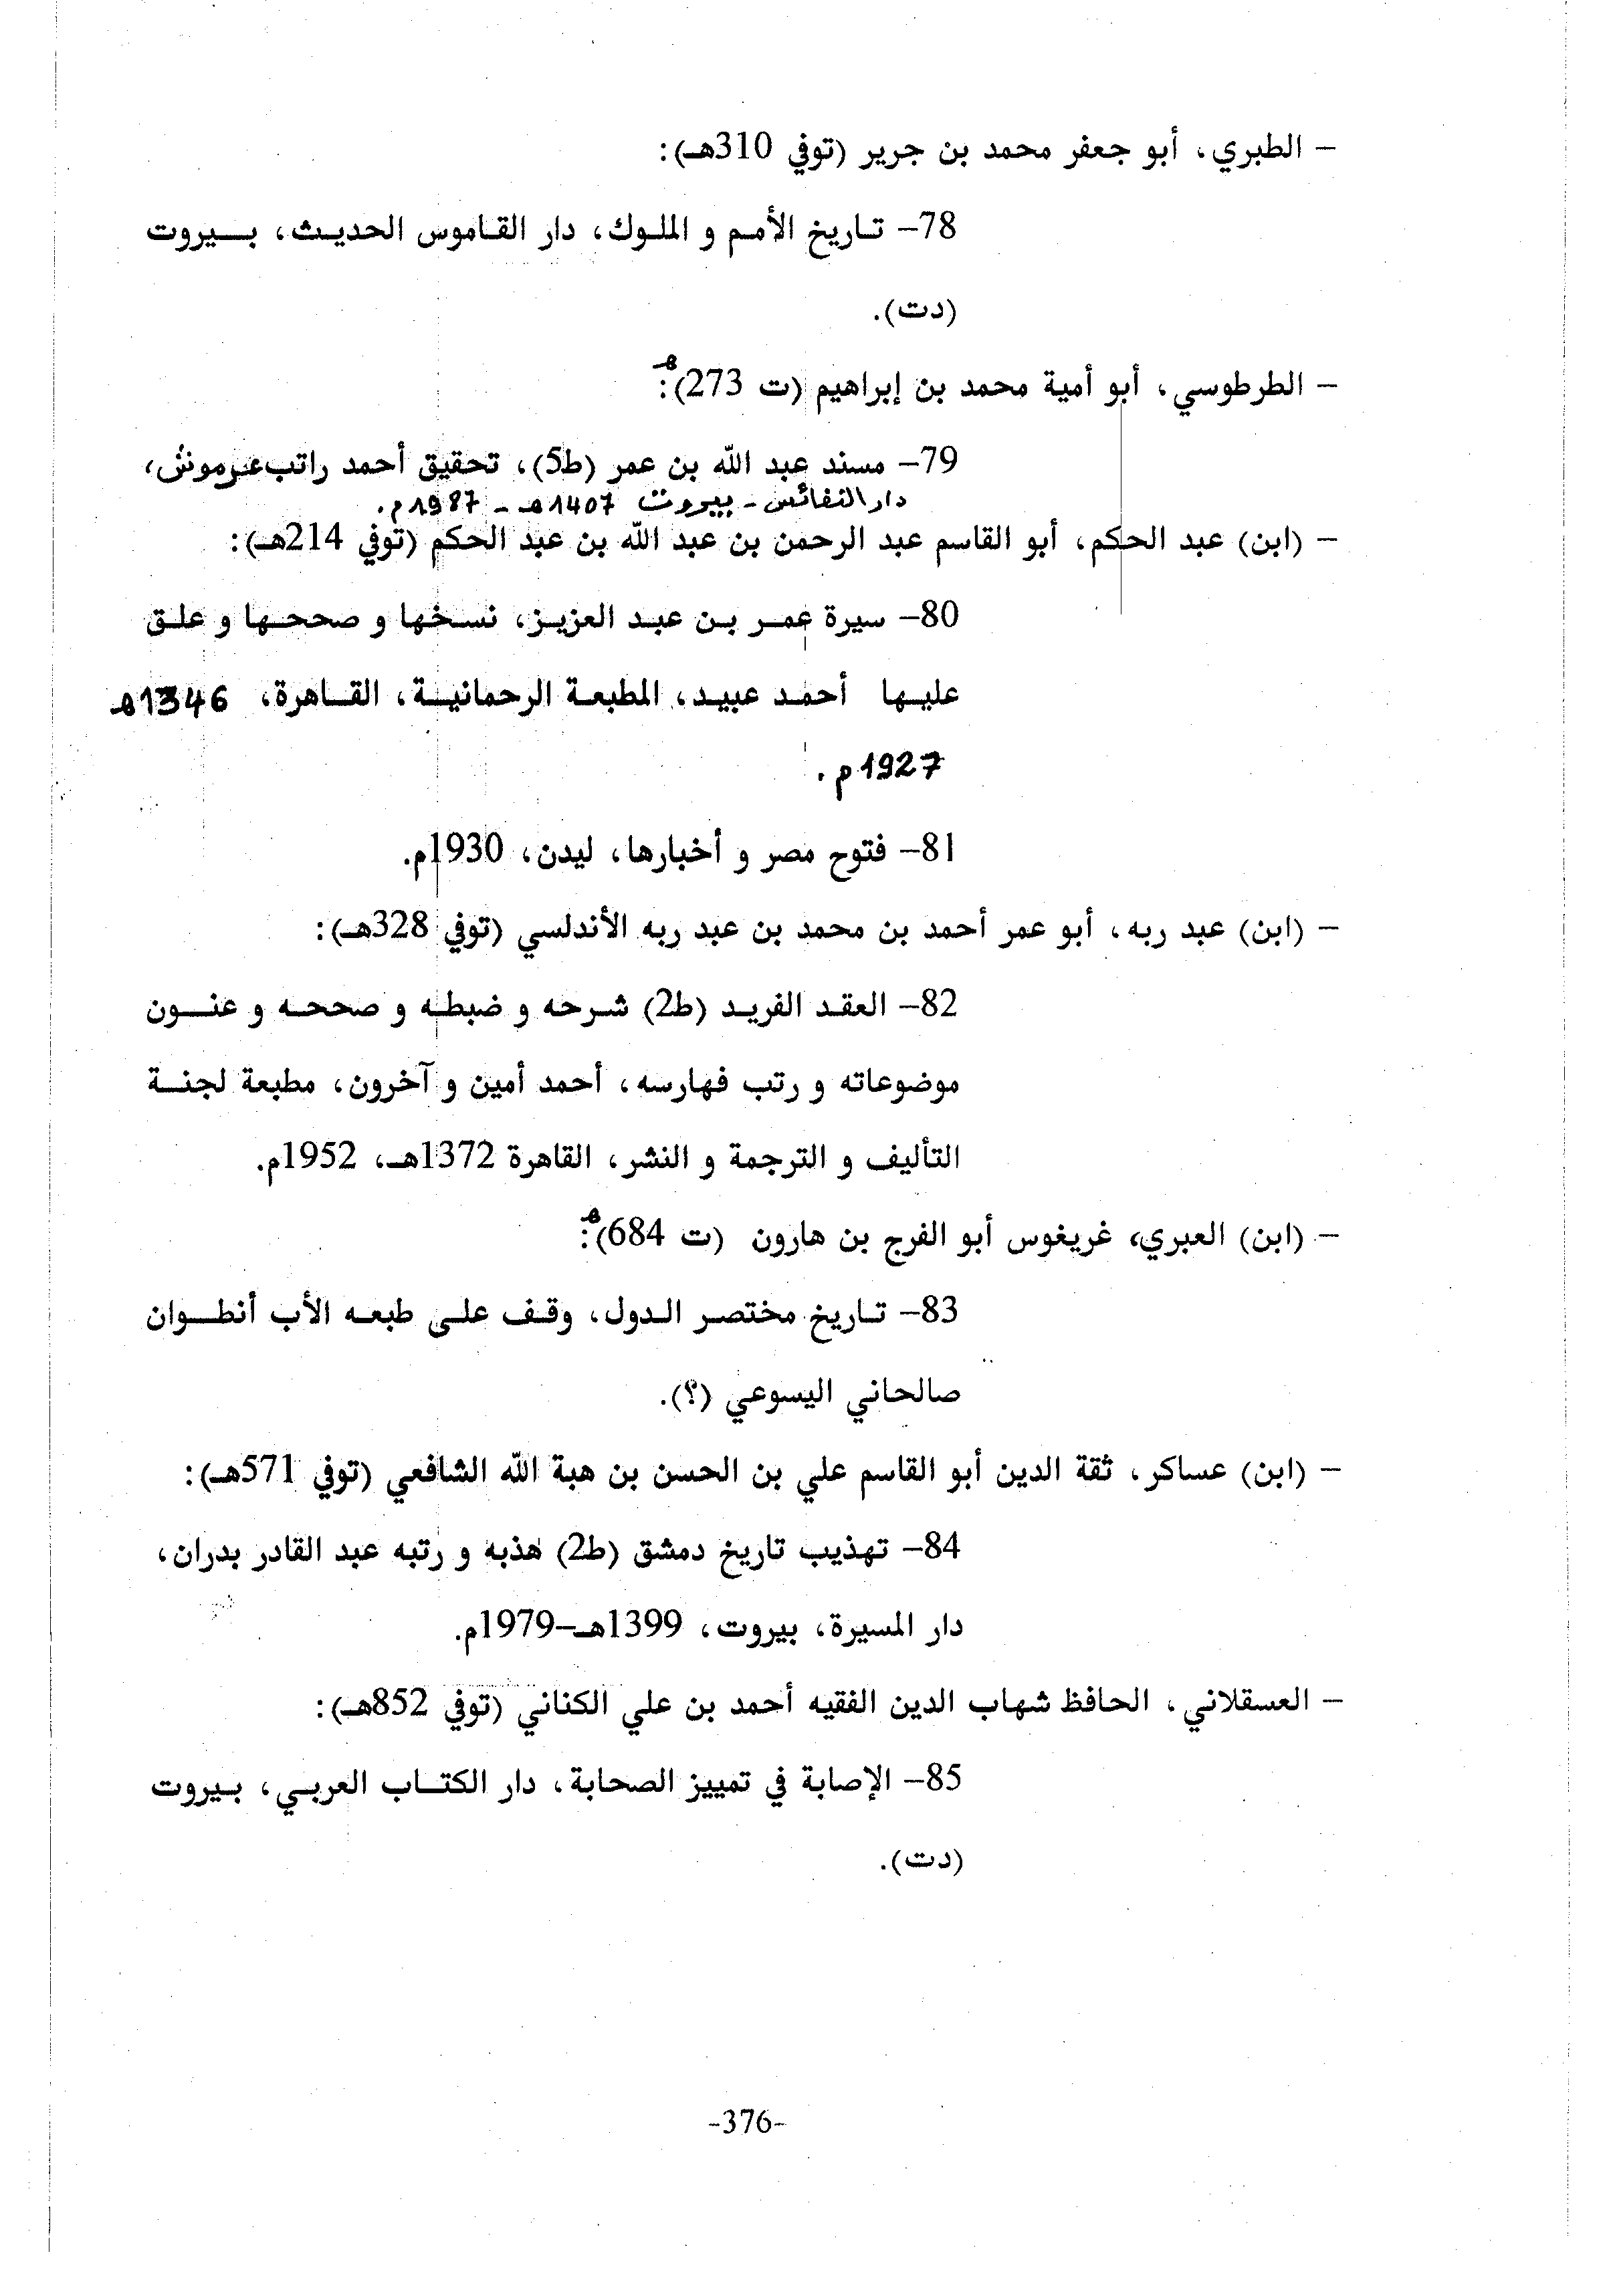 – الطبري، أبو جعفر محمد بن جرير (توفي 310هـ):
78– تاريخ الأمم و الملوك، دار القاموس الحديث، بيروت
(دت).
– الطرطوسي، أبو أمية محمد بن إبراهيم (ت 273هـ):
79– مسند عبد الله بن عمر (ط5)، تحقيق أحمد راتب عرموش،
دار النفائس - بيروت 1407هـ - 1987م.
– (ابن) عبد الحكم، أبو القاسم عبد الرحمن بن عبد الله بن عبد الحكم (توفي 214هـ):
80– سيرة عمر بن عبد العزيز، نسخها و صححها و علق
عليها أحمد عبيد، المطبعة الرحمانية، القاهرة، 1346هـ
1927م.
81– فتوح مصر و أخبارها، ليدن، 1930م.
– (ابن) عبد ربه، أبو عمر أحمد بن محمد بن عبد ربه الأندلسي (توفي 328هـ):
82– العقد الفريد (ط2) شرحه و ضبطه و صححه و عنون
موضوعاته و رتب فهارسه، أحمد أمين و آخرون، مطبعة لجنة
التأليف و الترجمة و النشر، القاهرة 1372هـ، 1952م.
– (ابن) العبري، غريغوس أبو الفرج بن هارون (ت 684هـ):
83– تاريخ مختصر الدول، وقف على طبعه الأب أنطوان
صالحاني اليسوعي (؟).
– (ابن) عساكر، ثقة الدين أبو القاسم علي بن الحسن بن هبة الله الشافعي (توفي 571هـ):
84– تهذيب تاريخ دمشق (ط2) هذبه و رتبه عبد القادر بدران،
دار المسيرة، بيروت، 1399هـ–1979م.
– العسقلاني، الحافظ شهاب الدين الفقيه أحمد بن علي الكناني (توفي 852هـ):
85– الإصابة في تمييز الصحابة، دار الكتاب العربي، بيروت
(دت).
-376-